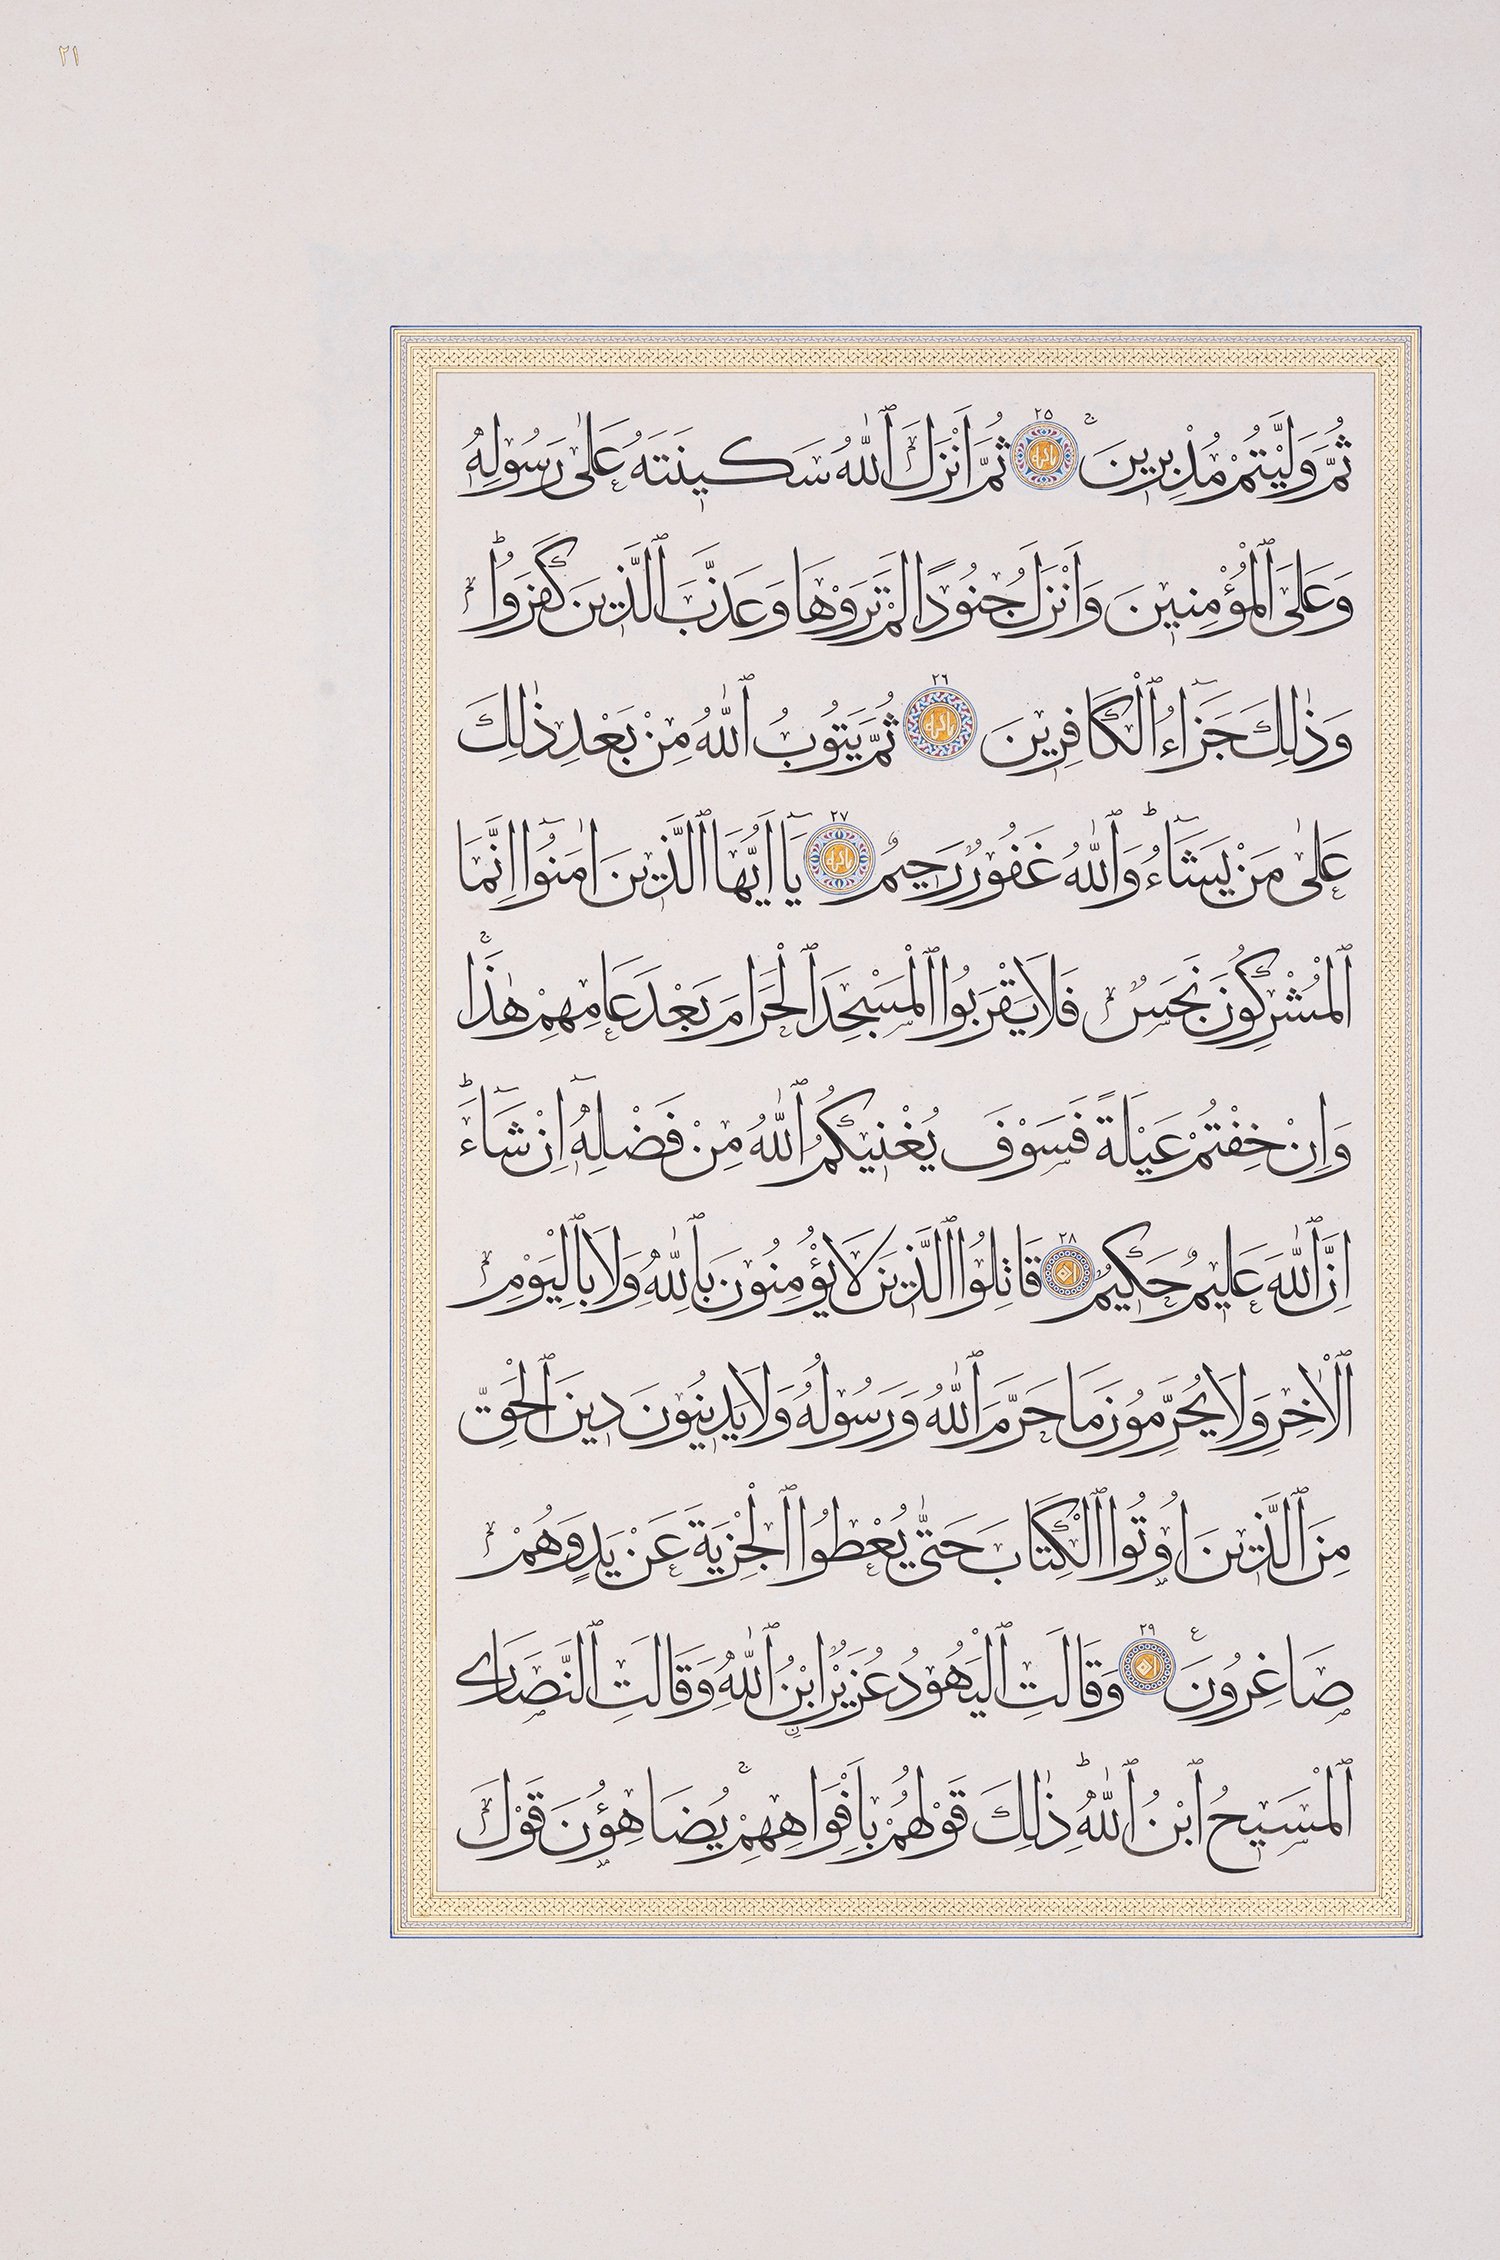 ٢١
ثُمَّ وَلَّيْتُمْ مُدْبِرِينَ ۚ ٢٥ ثُمَّ اَنْزَلَ ٱللّٰهُ سَكِينَتَهُ عَلٰى رَسُولِهِ
وَعَلَى ٱلْمُؤْمِنِينَ وَاَنْزَلَ جُنُودًا لَمْ تَرَوْهَا وَعَذَّبَ ٱلَّذِينَ كَفَرُوا ۜ
وَذٰلِكَ جَزَٓاءُ ٱلْكَافِرِينَ ٢٦ ثُمَّ يَتُوبُ ٱللّٰهُ مِنْ بَعْدِ ذٰلِكَ
عَلٰى مَنْ يَشَٓاءُ ؕ وَٱللّٰهُ غَفُورٌ رَحِيمٌ ٢٧ يَٓا اَيُّهَا ٱلَّذِينَ اٰمَنُٓوا اِنَّمَا
ٱلْمُشْرِكُونَ نَجَسٌ فَلَا يَقْرَبُوا ٱلْمَسْجِدَ ٱلْحَرَامَ بَعْدَ عَامِهِمْ هٰذَا ۚ
وَاِنْ خِفْتُمْ عَيْلَةً فَسَوْفَ يُغْنِيكُمُ ٱللّٰهُ مِنْ فَضْلِهِٓ اِنْ شَٓاءَ ؕ
اِنَّ ٱللّٰهَ عَلِيمٌ حَكِيمٌ ٢٨ قَاتِلُوا ٱلَّذِينَ لَا يُؤْمِنُونَ بِٱللّٰهِ وَلَا بِٱلْيَوْمِ
ٱلْاٰخِرِ وَلَا يُحَرِّمُونَ مَا حَرَّمَ ٱللّٰهُ وَرَسُولُهُ وَلَا يَدِينُونَ دِينَ ٱلْحَقِّ
مِنَ ٱلَّذِينَ اُوتُوا ٱلْكِتَابَ حَتّٰى يُعْطُوا ٱلْجِزْيَةَ عَنْ يَدٍ وَهُمْ
صَاغِرُونَ ع ٢٩ وَقَالَتِ ٱلْيَهُودُ عُزَيْرٌ ابْنُ ٱللّٰهِ وَقَالَتِ ٱلنَّصَارَى
ٱلْمَسِيحُ ٱبْنُ ٱللّٰهِ ؕ ذٰلِكَ قَوْلُهُمْ بِاَفْوَاهِهِمْ ۚ يُضَاهِؤُنَ قَوْلَ